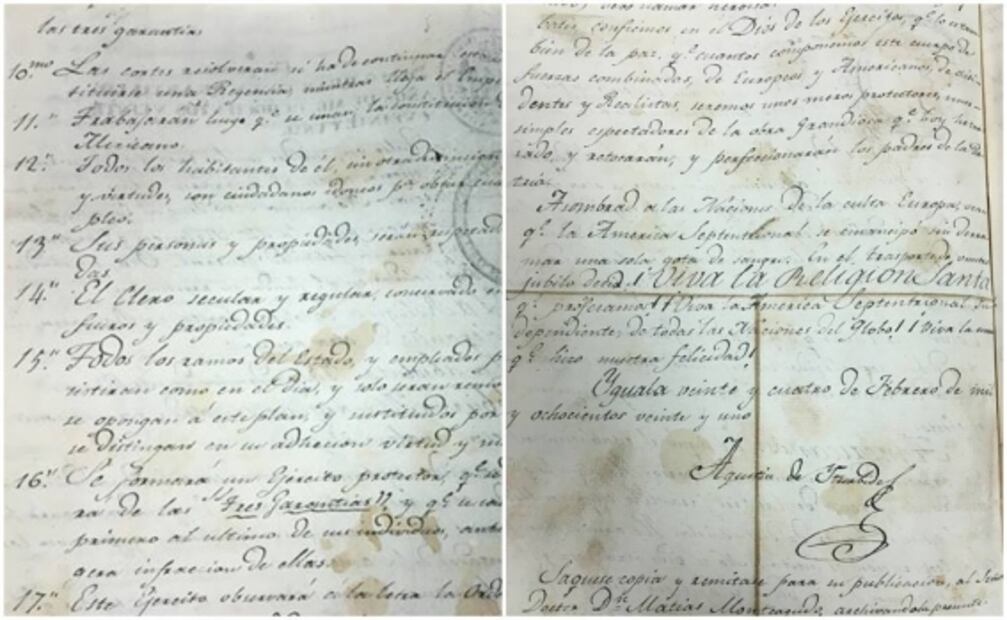 las tres garantias.
10.mo Las cortes resolveran si ha de continuar esta
tituirse una Regencia, mientras llega el Emp
11.º Trabajaran luego qe se unan, la constitucion
Mexicano.
12.º Todos los habitantes de él, sin otra distincion
y virtudes, son ciudadanos idoneos pa optar cua
pleo.
13.º Sus personas y propiedades, serán respetad
das
14.º El Clero secular y regular, conservado en
fueros y propiedades.
15.º Todos los ramos del Estado, y empleados p
sistirán como en el dia, y solo serán remo
se opongan a este plan, y sustituidos por
se distingan en su adhesion virtud y
16.º Se formará un Ejército protector, qe se
ra de las "Tres Garantias" y qe se
primero al ultimo de sus individuos, ante
gera infraccion de ellas.
17.º Este Ejército observará á la letra la Orde
batir confiemos en el Dios de los Ejercitos, qe lo es tam
bien de la paz, qe cuantos componemos este cuerpo de
fuerzas combinadas, de Europeos y Americanos, de disi
dentes y Realistas, seremos unos meros protectores, unos
simples espectadores de la obra Grandiosa qe hoy he tra
zado, y retocarán, y perfeccionarán los padres de la Pa
tria.
Asombrad a las Naciones de la culta Europa, vean
qe la America Septentrional se emancipó sin derra
mar una sola gota de sangre. En el trasporte de vuestro
jubilo decid ¡Viva la Religion Santa
qe profesamos! ¡Viva la America Septentrional In
dependiente, de todas las Naciones del Globo! ¡Viva la union
qe hizo nuestra felicidad!
Yguala veinte y cuatro de Febrero de mil
y ochocientos veinte y uno
Agustin de Yturbide
Saquese copia y remitase para su publicacion, al Señor
Doctor Dn Matias Monteagudo, archivandola presente